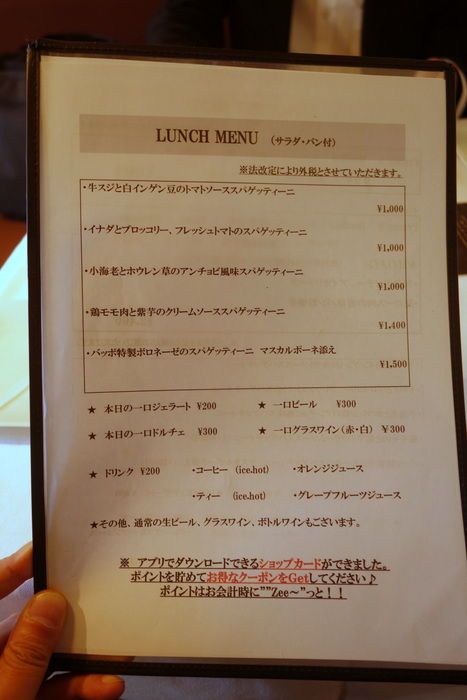 LUNCH MENU （サラダ・パン付）
※法改定により外税とさせていただきます。
・牛スジと白インゲン豆のトマトソーススパゲッティーニ
¥1,000
・イナダとブロッコリー、フレッシュトマトのスパゲッティーニ
¥1,000
・小海老とホウレン草のアンチョビ風味スパゲッティーニ
¥1,000
・鶏モモ肉と紫芋のクリームソーススパゲッティーニ
¥1,400
・バッボ特製ボロネーゼのスパゲッティーニ マスカルポーネ添え
¥1,500
★ 本日の一口ジェラート ¥200 ★ 一口ビール ¥300
★ 本日の一口ドルチェ ¥300 ★ 一口グラスワイン（赤・白） ¥300
★ ドリンク ¥200 ・コーヒー (ice.hot) ・オレンジジュース
・ティー (ice.hot) ・グレープフルーツジュース
★その他、通常の生ビール、グラスワイン、ボトルワインもございます。
※ アプリでダウンロードできるショップカードができました。
ポイントを貯めてお得なクーポンをGetしてください♪
ポイントはお会計時に””Zee～”っと！！